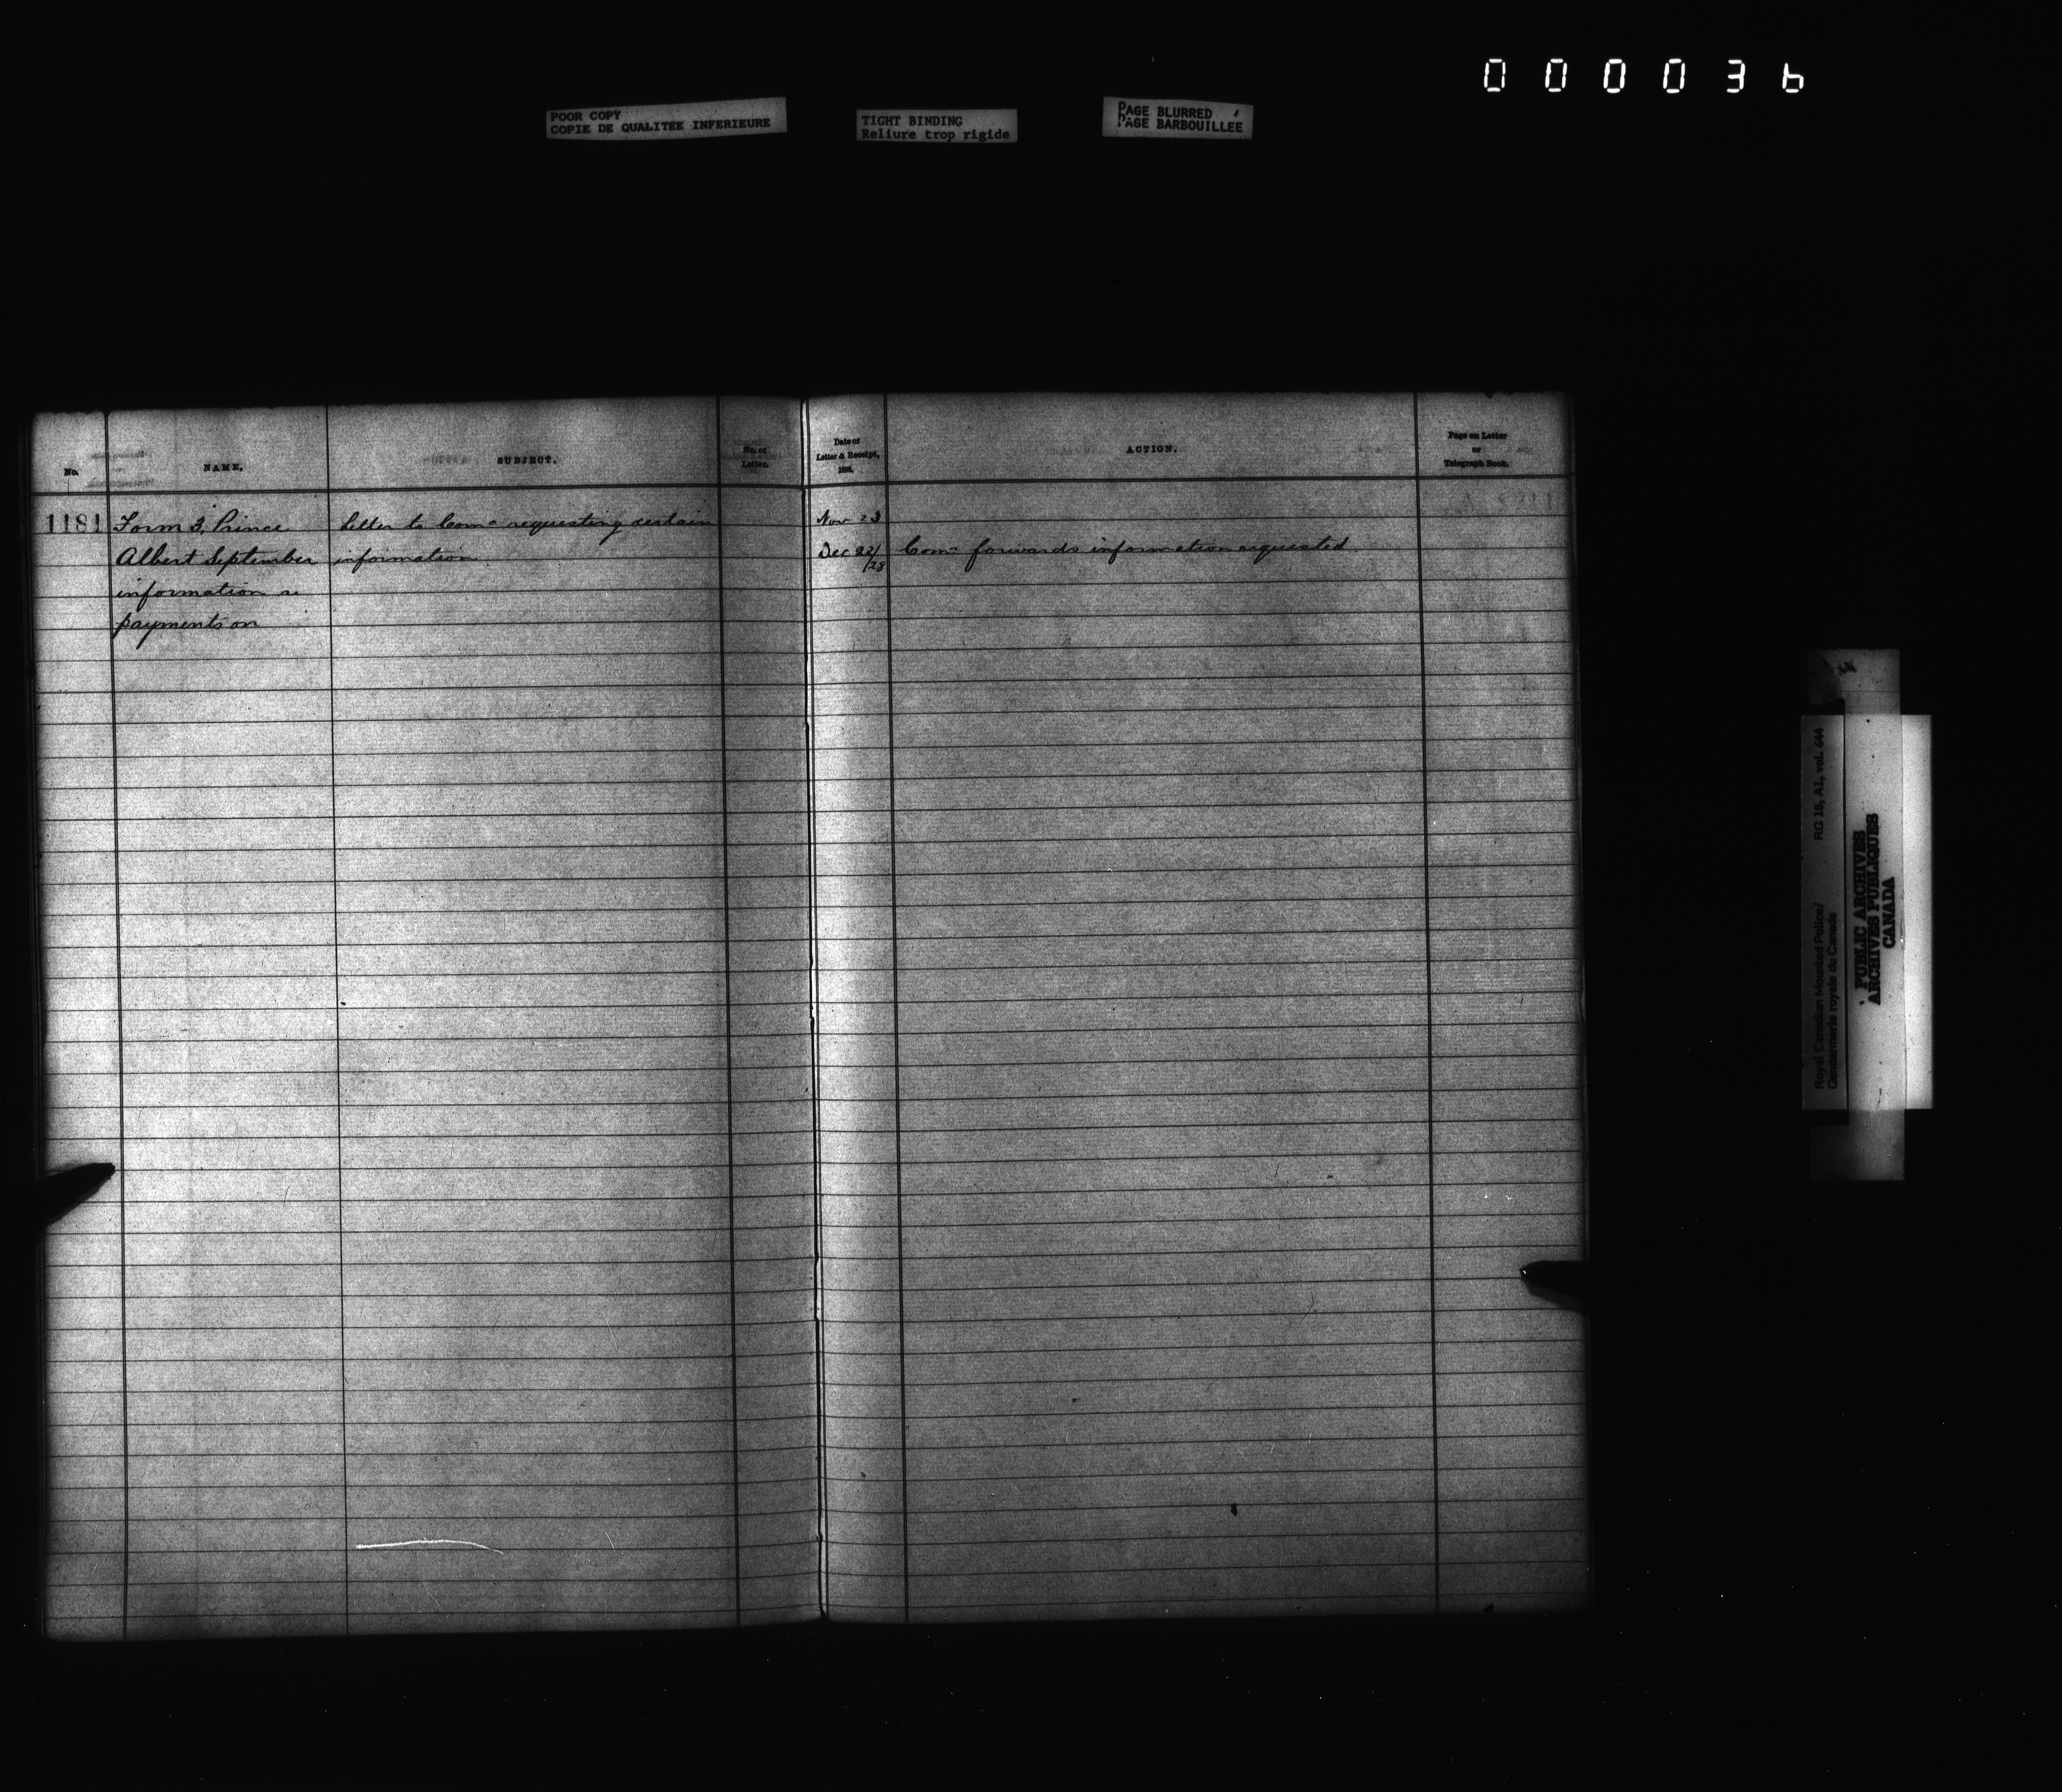 000036
POOR COPY
COPIE DE QUALITEE INFERIEURE
TIGHT BINDING
Reliure trop rigide
PAGE BLURRED
PAGE BARBOUILLEE
No.
NAME.
SUBJECT.
No. of
Letter.
Date of
Letter & Receipt,
ACTION.
Page on Letter
or
Telegraph Book.
1181 Form 3, Prince Letter to Comr requesting certain Nov 23
Albert September information Dec 22/28 Comr forwards information requested.
information re
payments on
Royal Canadian Mounted Police/ RG 18, A1, vol. 644
Gendarmerie royale du Canada
PUBLIC ARCHIVES
ARCHIVES PUBLIQUES
CANADA